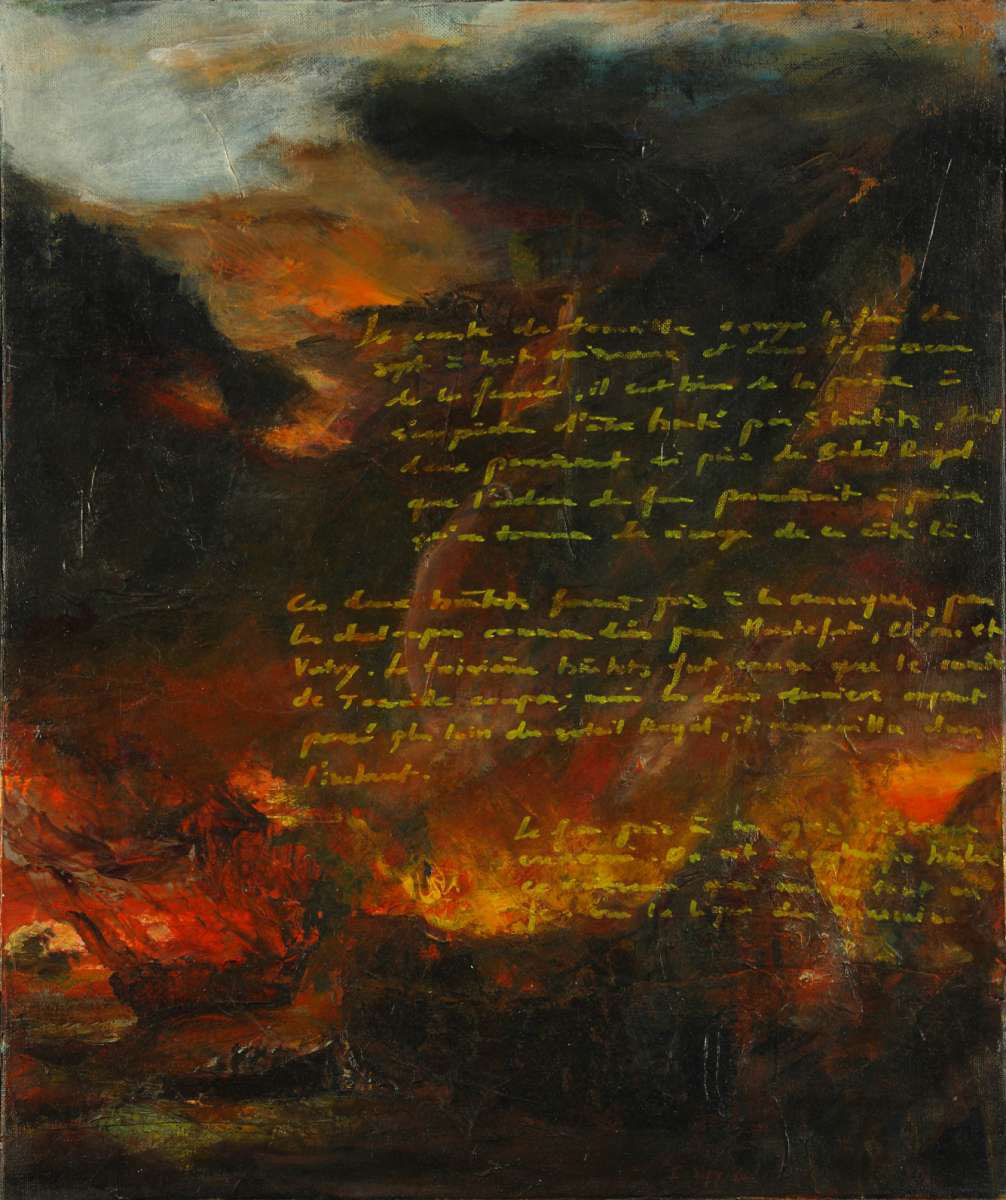 Le comte de Tourville essuya le feu de
sept à huit vaisseaux et dans l'épaisseur
de la fumée, il eut bien de la peine à
s'empêcher d'être brûlé par 5 brûlots, dont
deux passèrent si près du Soleil Royal
que l'ardeur du feu permettait à peine
qu'on tourna le visage de ce côté là.
Ces deux brûlots furent pris à la remorque, par
les chaloupes commandées par et
Valry. Le troisième brûlots fut cause que le comte
de Tourville coupa; mais les deux derniers ayant
passé plus loin du soleil Royal, il remouilla dans
l'instant.
Le feu pris à un gros vaisseau
ennemi. On vit brûler
ce vaisseau
la ligne des ennemis.